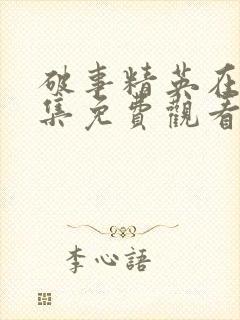 破事精英在
集免費觀看
李心語